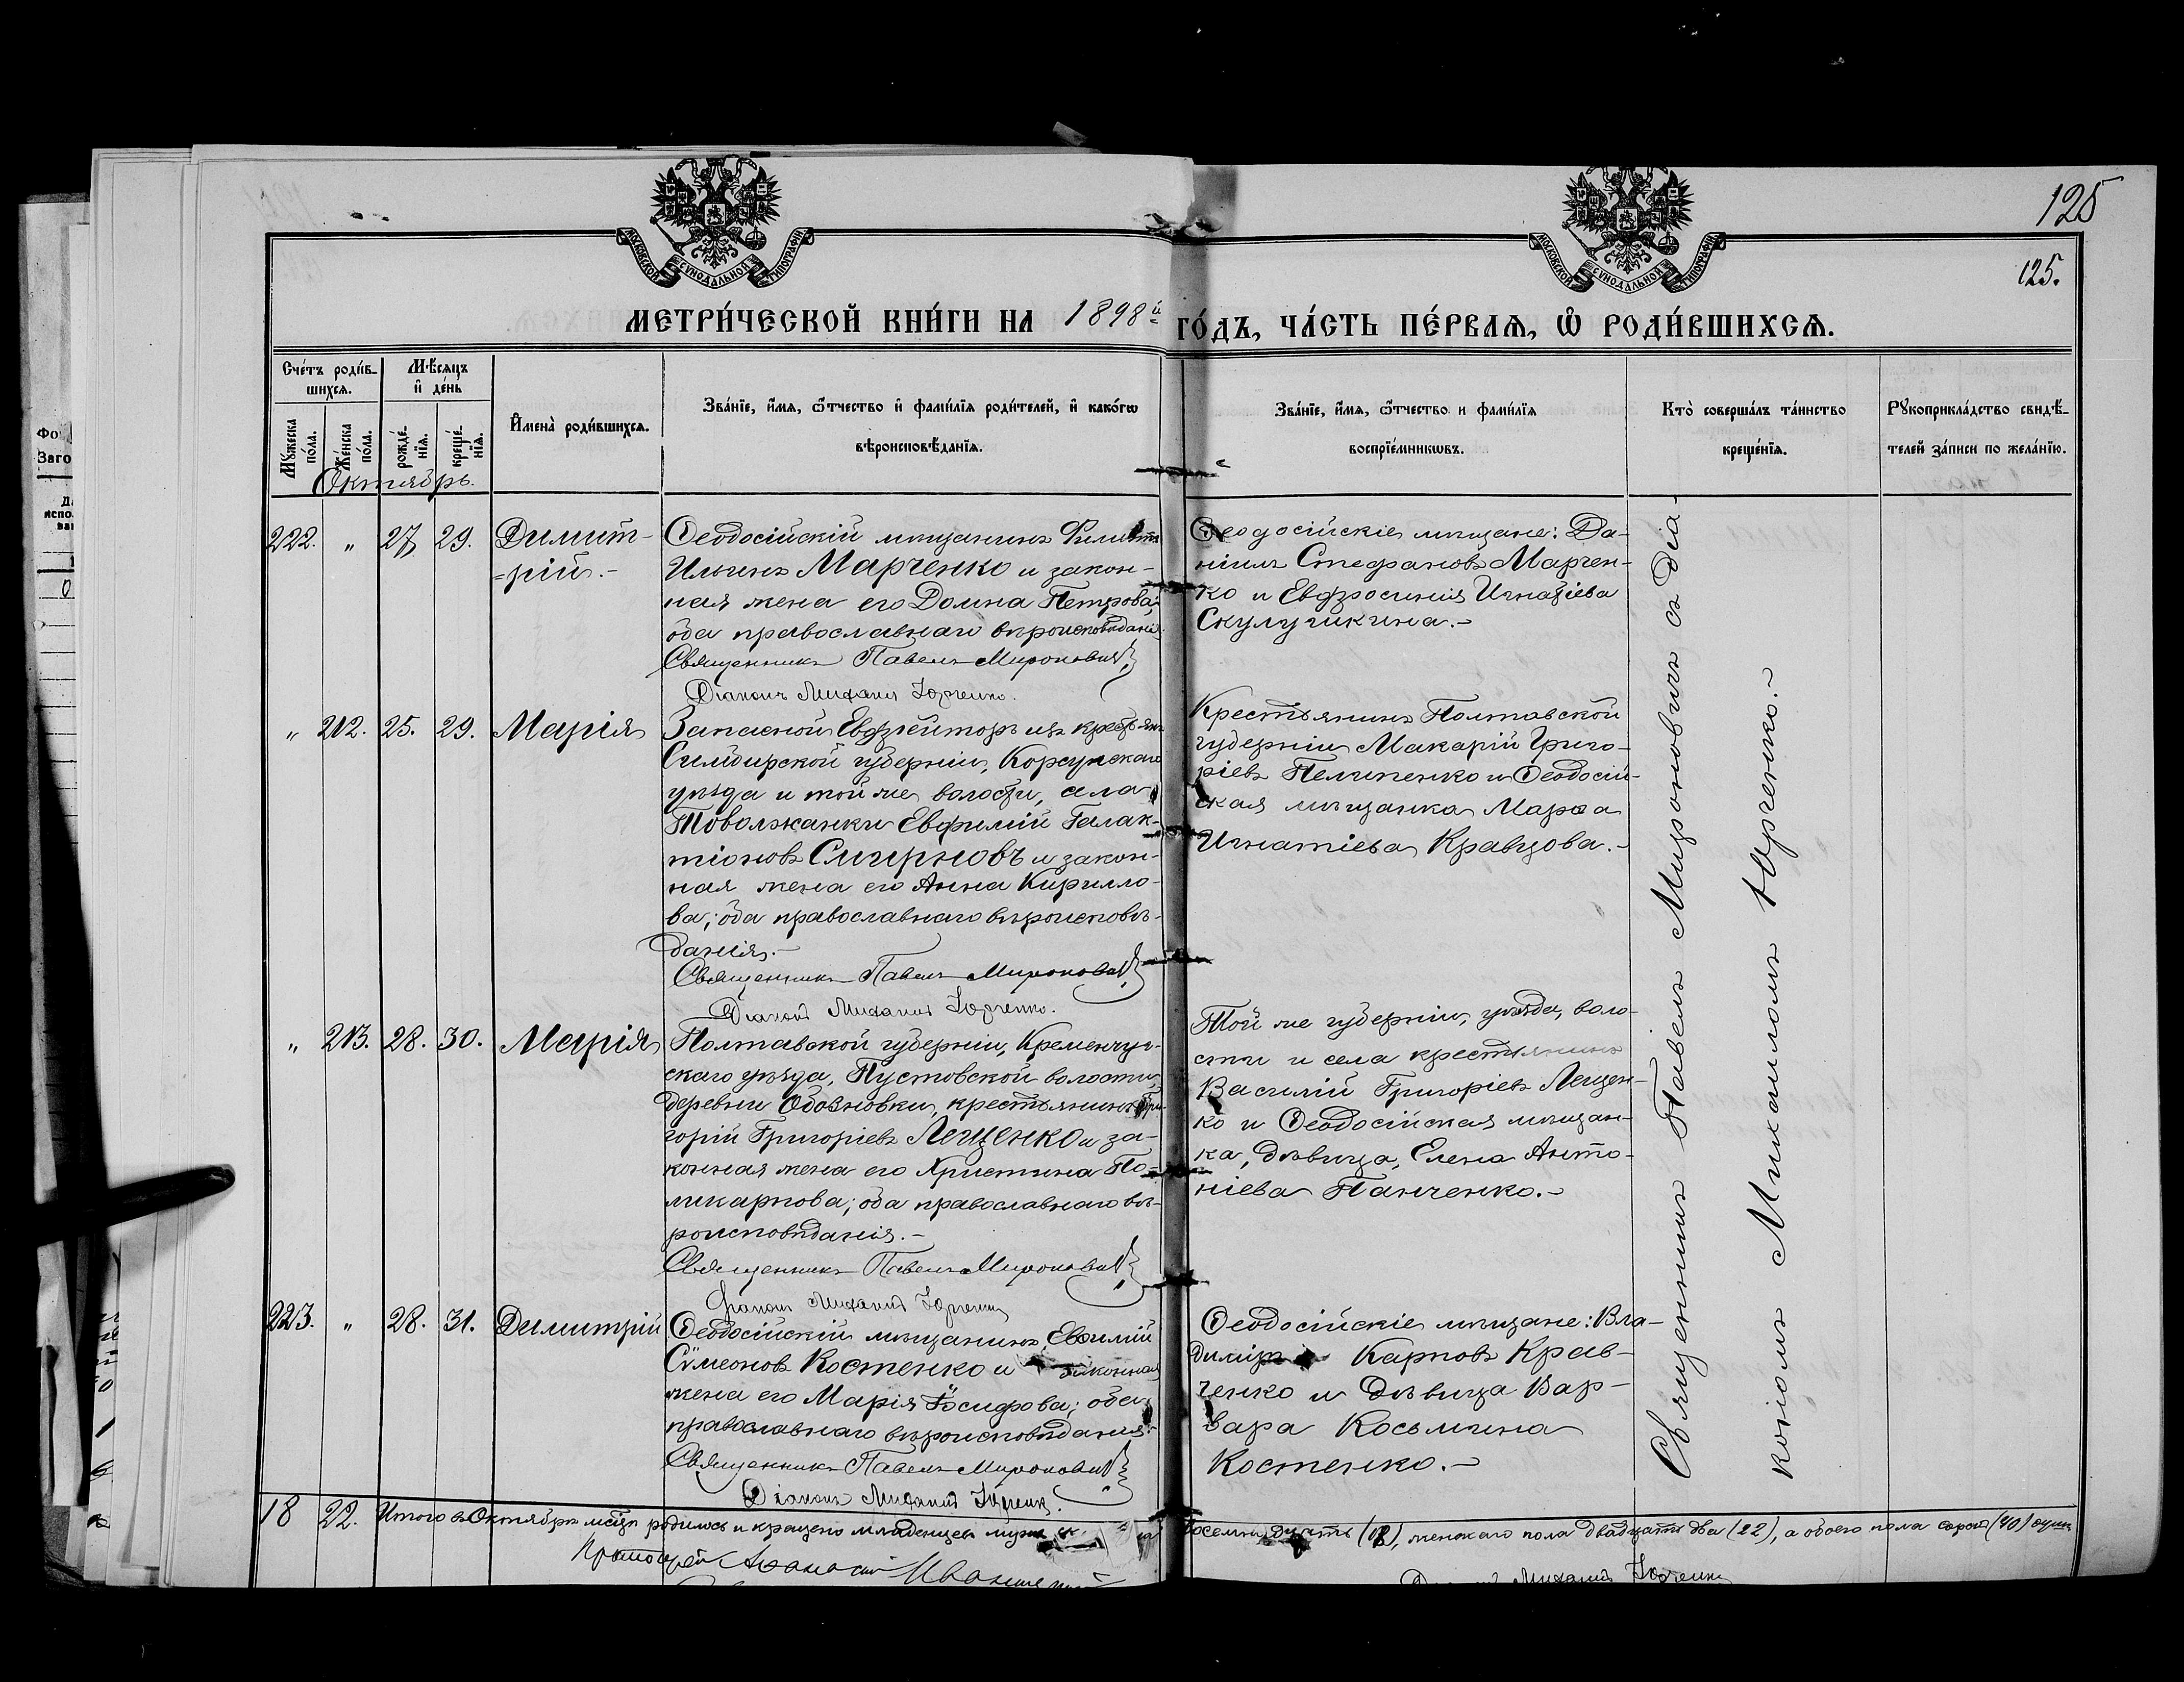 125
125.
МОСКОВСКОЙ СѴНОДАЛЬНОЙ ТИПОГРАФІИ
МОСКОВСКОЙ СѴНОДАЛЬНОЙ ТИПОГРАФІИ
МЕТРИ́ЧЕСКОЙ КНИ́ГИ НА 1898й ГО́ДЪ, ЧА́СТЬ ПЕ́РВАѦ, Ѽ РОДИ́ВШИХСѦ.
Сче́тъ роди́в-
шихсѧ.
Мѣ́сѧцъ
и҆ де́нь
Мꙋ́жеска по́ла.
Же́нска по́ла.
рожде́-
нїѧ.
креще́-
нїѧ.
И҆мена̀ роди́вшихсѧ.
Зва́нїе, и҆́мѧ, ѻ҆́тчество и҆ фами́лїѧ роди́телей, и҆ како́гѡ
вѣроисповѣ́данїѧ.
Зва́нїе, и҆́мѧ, ѻ҆́тчество и фами́лїѧ
воспрїе́мникѡвъ.
Кто̀ соверша́лъ та́инство
креще́нїѧ.
Рꙋкоприкла́дство свидѣ́-
телей за́писи по жела́нїю.
Октябрь.
222. „ 27 29. Димит-
=рій.-
Ѳеодосійскій мѣщанинъ Филиппъ
Ильинъ Марченко и закон-
ная жена его Домна Петрова;
оба православнаго вѣроисповѣданія.
Священникъ Павелъ Мироновичъ
Діаконъ Михаилъ Юрченко.
Ѳеодосійскіе мѣщане: Да-
ніилъ Стефановъ Марчен-
ко и Евфросинія Игнатіева
Скулушкина.-
„ 212. 25. 29. Марія
Запасной Ефрейторъ изъ крестьянъ
Симбирской губерніи, Корсунскаго
уѣзда и той же волости, села
Товолжанки Евфимій Галак-
тіоновъ Смирновъ и закон-
ная жена его Анна Кирилло-
ва; оба православнаго вѣроисповѣ-
данія.-
Священникъ Павелъ Мироновичъ
Діаконъ Михаилъ Юрченко.
Крестьянинъ Полтавской
губерніи Макарій Григо-
ріевъ Пелипенко и Ѳеодосій-
ская мѣщанка Марѳа
Игнатіева Кравцова.-
„ 213. 28. 30. Марія
Полтавской губерніи, Кременчуг-
скаго уѣзда, Пустовской волости,
деревни Обозновки, крестьянинъ Гри-
горій Григоріевъ Лещенко и за-
конная жена его Христина По-
ликарпова; оба православнаго вѣ-
роисповѣданія.-
Священникъ Павелъ Мироновичъ
Діаконъ Михаилъ Юрченко
Той же губерніи, уѣзда, воло-
сти и села крестьянинъ
Василій Григоріевъ Лещен-
ко и Ѳеодосійская мѣщан-
ка, дѣвица, Елена Анто-
ніева Панченко.-
223. „ 28. 31. Димитрій
Ѳеодосійскій мѣщанинъ Евѳимій
Сѵмеоновъ Костенко и законная
жена его Марія Іосифова; оба
православнаго вѣроисповѣданія.
Священникъ Павелъ Мироновичъ
Діаконъ Михаилъ Юрченко.
Ѳеодосійскіе мѣщане: Вла-
диміръ Карповъ Крав-
ченко и дѣвица Вар-
вара Косьмина
Костенко.-
Священникъ Павелъ Мироновичъ съ діа-
кономъ Михаиломъ Юрченко.-
18 22. Итого въ Октябрѣ мѣсяцѣ родилось и крещено младенцевъ восемнадцать (18), женскаго пола двадцать два (22), а обоего пола сорокъ (40)
Протоіерей
Діаконъ Михаилъ Юрченко